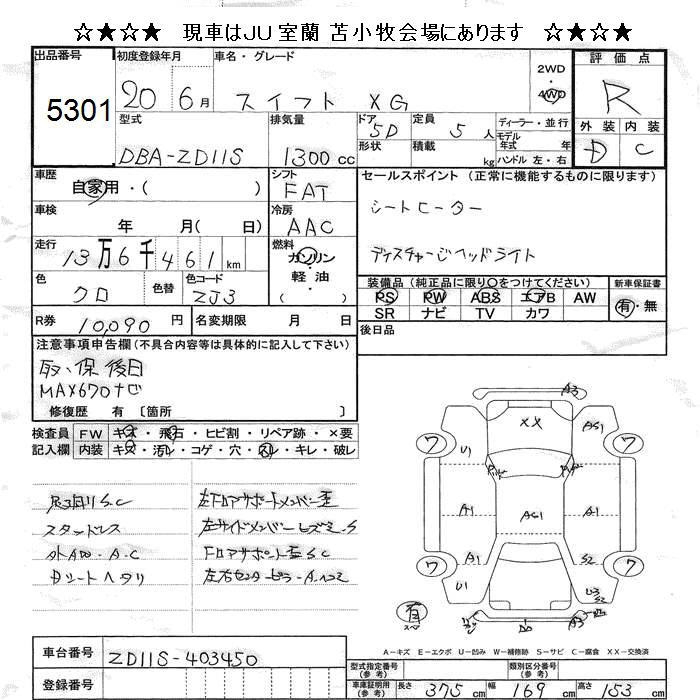 ☆★☆★ 現車はJU室蘭 苫小牧会場にあります ☆★☆★
出品番号
5301
初度登録年月
20 6月
車名・グレード
スイフト XG
2WD
・
4WD
評価点
R
外装 内装
D C
型式
DBA-ZD11S
排気量
1300cc
ドア
5D
形状
定員
5人
積載
kg
ディーラー・並行
モデル
年式 年
ハンドル 左・右
車歴
自家用・( )
シフト
FAT
車検
年 月( 日)
冷房
AAC
走行
13万6千461km
燃料
ガソリン
軽油
・( )
色
クロ
色替
色コード
ZJ3
R券
10,090円
名変期限 月 日
セールスポイント(正常に機能するものに限ります)
シートヒーター
ディスチャージヘッドライト
装備品(純正品に限り○をつけてください)
PS PW ABS エアB AW
SR ナビ TV カワ
新車保証書
有・無
後日品
注意事項申告欄(不具合内容等は具体的に記入して下さい)
取、保 後日
MAX670ナビ
修復歴 有 〔箇所 〕
検査員
記入欄
FW キズ・飛石・ヒビ割・リペア跡・×要
内装 キズ・汚れ・コゲ・穴・スレ・キレ・破レ
下廻り S.C
スタッドレス
外AW・A.C
Dシートヘタリ
左FロアサポートメンバーE
左サイドメンバー S
FロアサポートE S.C
左右センターピラー
A3
XX
U1
AS1
ワ
ワ
A1
AS1
A1
A1
S2
ワ
ワ
U1
U3
S2
有
スペ
A3
A-キズ E-エクボ U-凹み W-補修跡 S-サビ C-腐食 XX-交換済
車台番号
ZD11S-403450
登録番号
型式指定番号
(参考)
類別区分番号
(参考)
車庫証明用
(参考)
長さ 375cm 幅 169cm 高さ 153cm